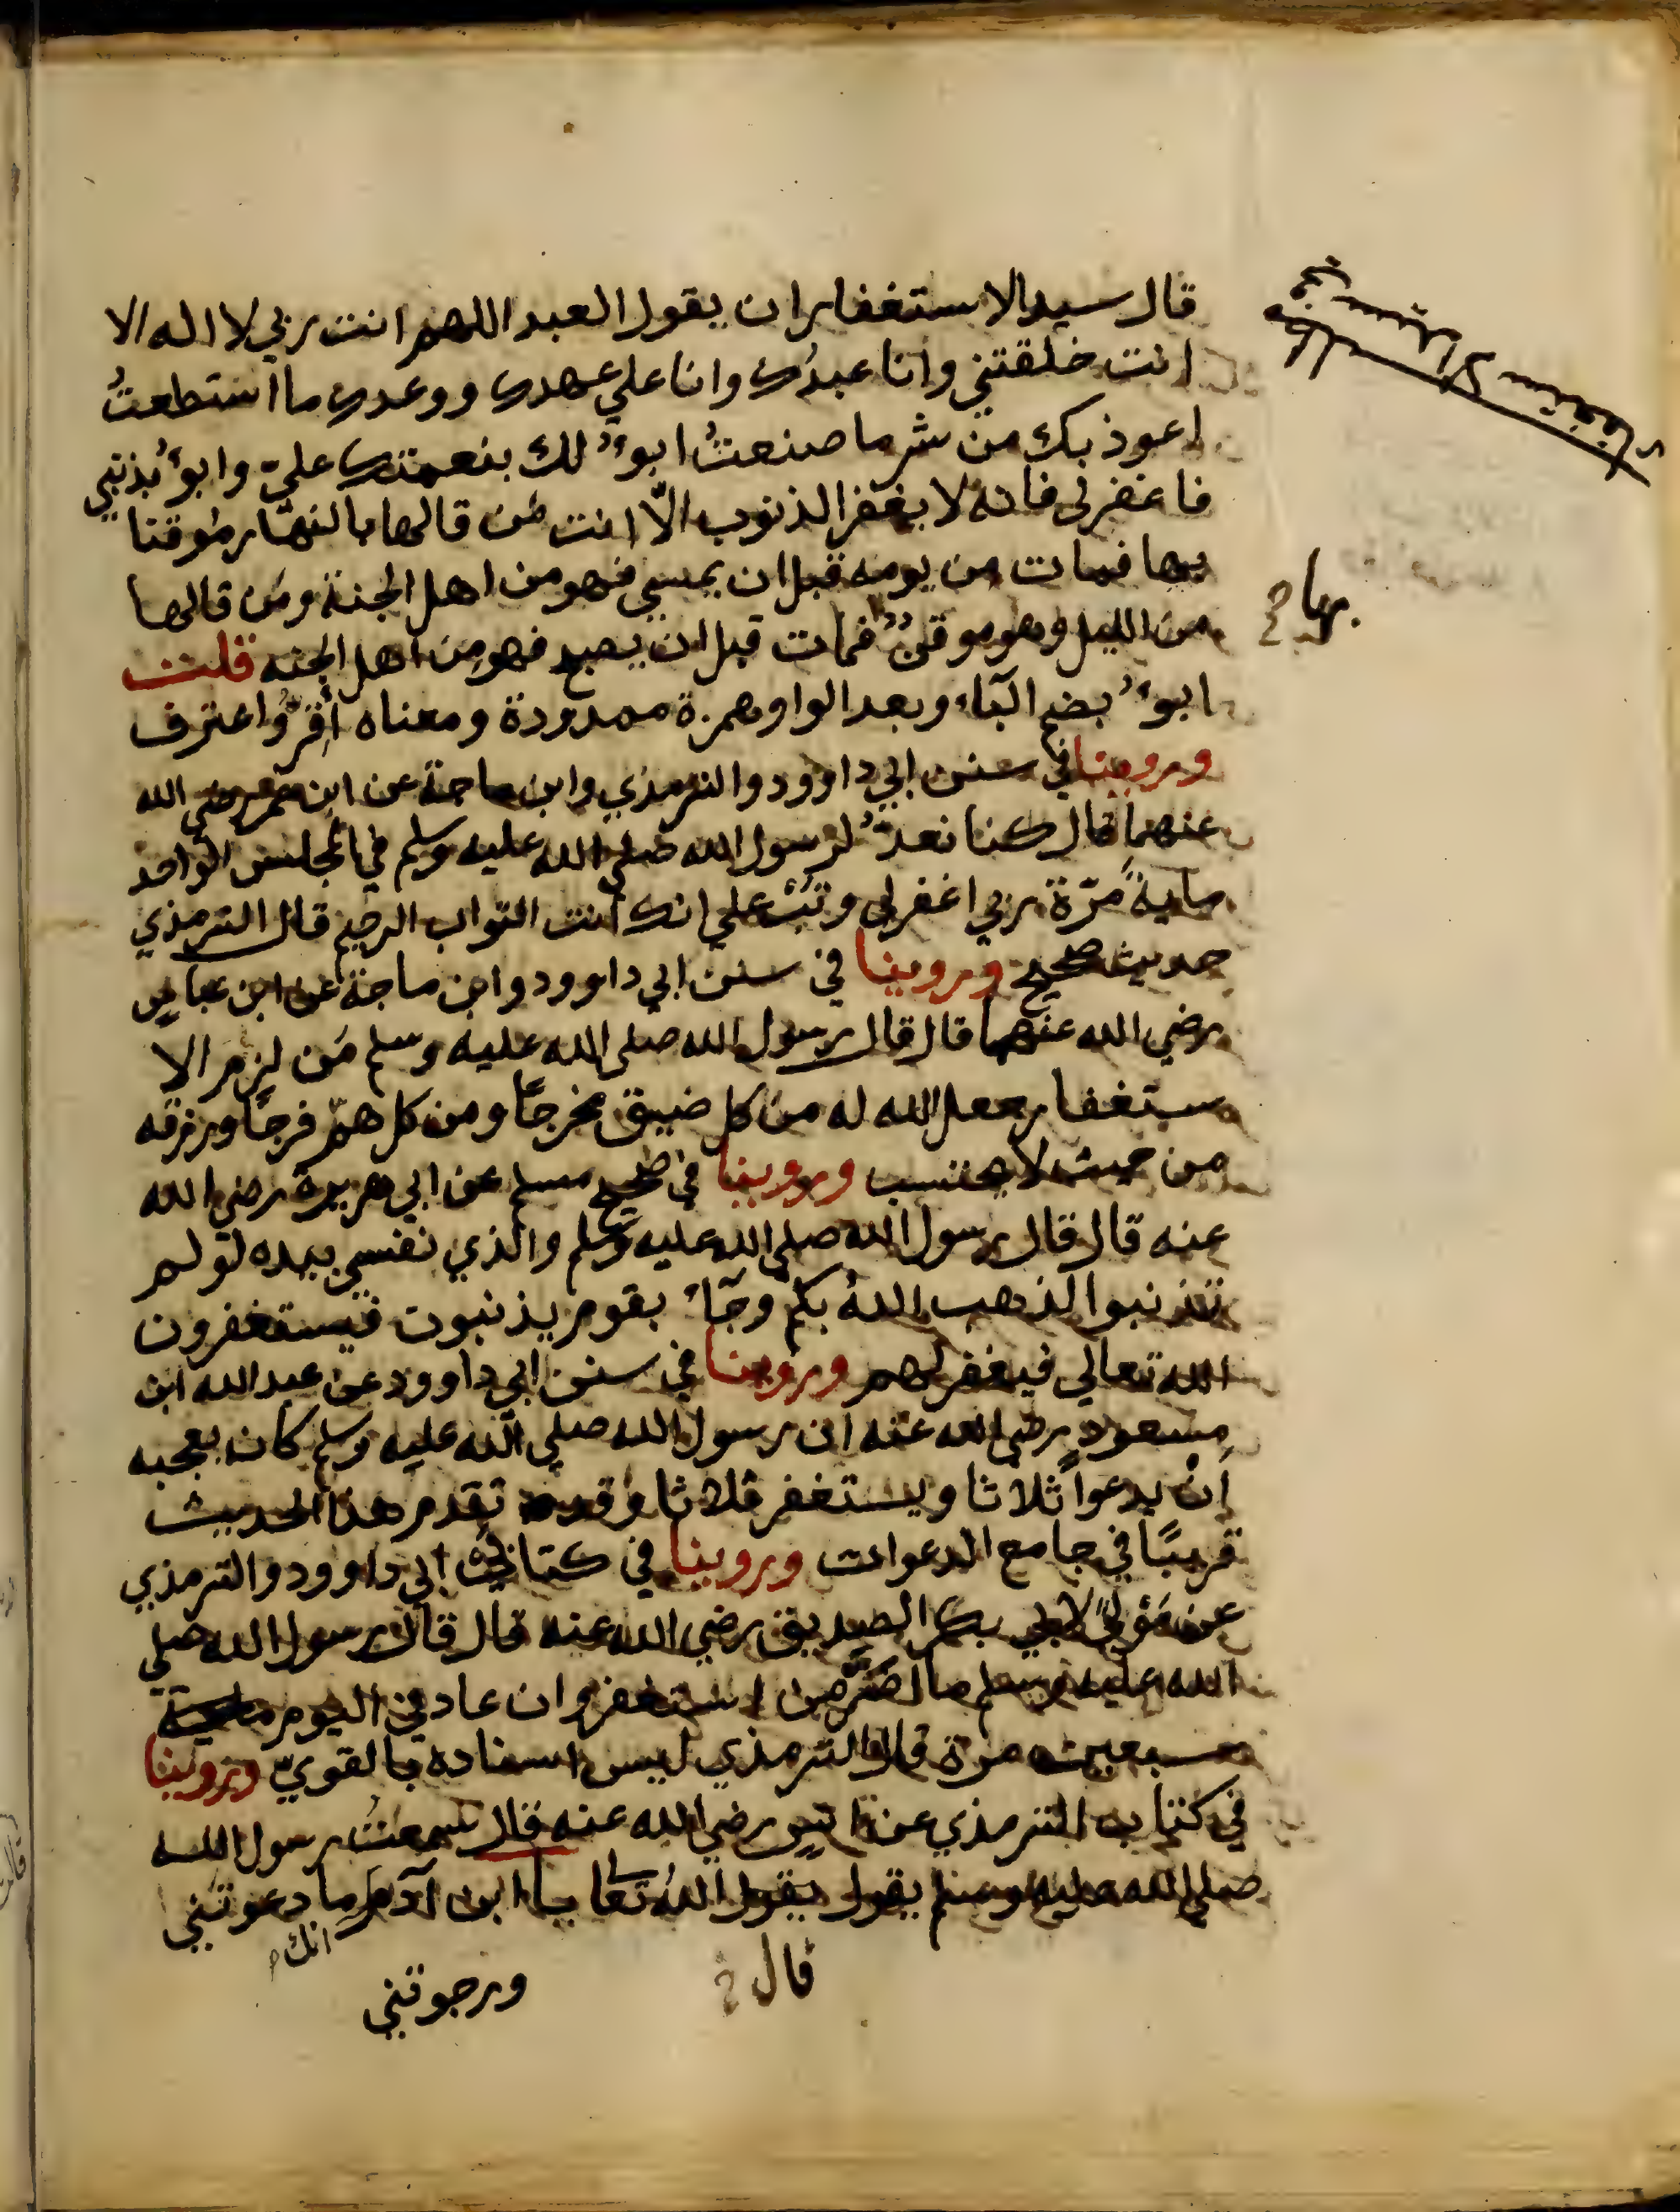 قال سيد الاستغفار ان يقول العبد اللهم انت ربي لا اله الا
انت خلقتني وانا عبدُك وانا علي عهدك ووعدك ما استطعتُ
اعوذ بك من شر ما صنعتُ ابوءُ لك بنعمتك عليّ وابوءُ بذنبي
فاغفر لي فانه لا يغفر الذنوب الّا انت مَن قالها بالنهار موقنا
بها فمات من يومه قبل ان يمسي فهو من اهل الجنة ومَن قالها
من الليل وهو موقنٌ فمات قبل ان يصبح فهو من اهل الجنه قلت
بها
ابوءُ بضم البآء وبعد الواو همزة ممدودة ومعناه أقِرُّ واعترف
وروينا في سنن ابي داوود والترمذي وابن ماجة عن ابن عمر رضي الله
عنهما قال كنا نعدُّ لرسول الله صلى الله عليه وسلم في المجلس الواحد
مايةَ مرّة ربي اغفر لي وتُبْ علي انك انت التواب الرحيم قال الترمذي
حديث صحيح وروينا في سنن ابي داوود وابن ماجة عن ابن عباسٍ
رضي الله عنهما قال قال رسول الله صلى الله عليه وسلم مَن لزم الا
ستغفار جعل الله له من كل ضيق مخرجًا ومن كل همّ فرجًا ورزقه
من حيث لا يحتسب وروينا في صحيح مسلم عن ابي هريرة رضي الله
عنه قال قال رسول الله صلى الله عليه وسلم والذي نفسي بيده لو لم
تذنبوا لذهب اللهُ بكم وجآءَ بقوم يذنبون فيستغفرون
الله تعالي فيغفر لهم وروينا في سنن ابي داوود عن عبد الله ابن
مسعودٍ رضي الله عنه ان رسول الله صلي الله عليه وسلم كان يعجبه
ان يدعوا ثلاثا ويستغفر ثلاثا وقد تقدم هذا الحديث
قريبًا في جامع الدعوات وروينا في كتابي ابي داوود والترمذي
عن مَوْليً لابي بكر الصديق رضي الله عنه قال قال رسول الله صلي
الله عليه وسلم ما اصَرَّ من استغفر وان عاد في اليوم
سبعين مرة قال الترمذي ليس اسناده بالقويّ وروينا
في كتاب الترمذي عن انسٍ رضي الله عنه قال سمعتُ رسول الله
صلي الله عليه وسلم يقول يقول اللهُ تعالى يا ابن آدم ما دعوتني
انك
قال
ورجوتني